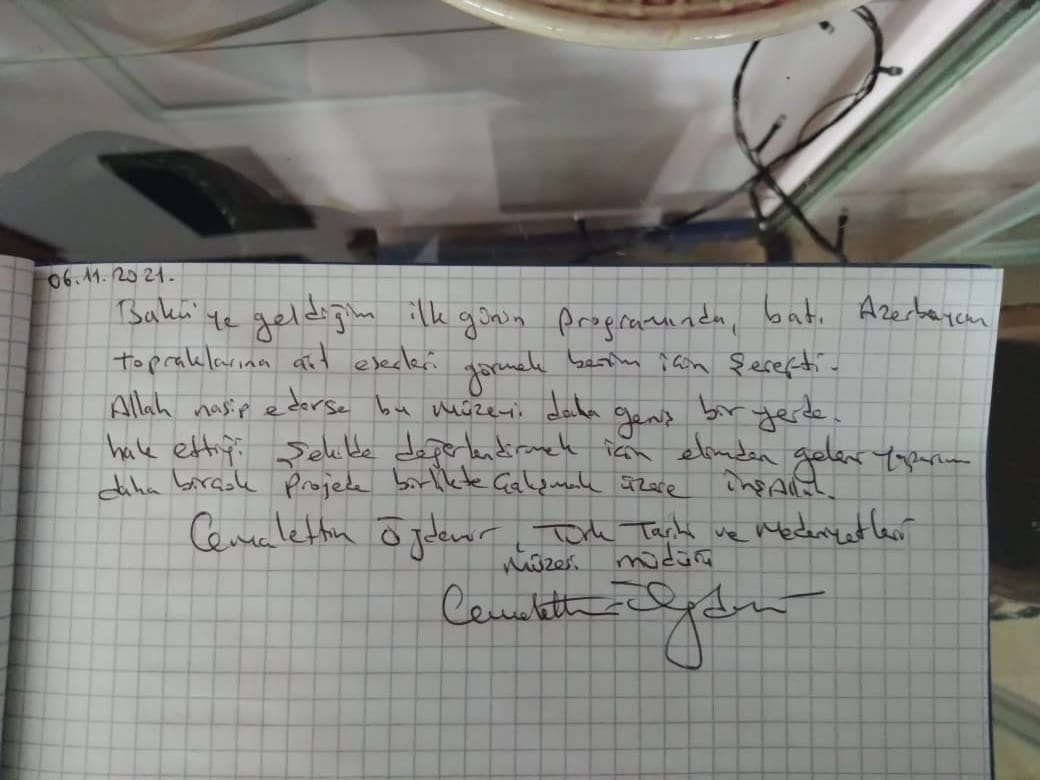 06.11.2021.
Bakü'ye geldiğim ilk günün programında, batı Azerbaycan
topraklarına ait eserleri görmek benim için şerefti.
Allah nasip ederse bu müzeyi daha geniş bir yerde.
hak ettiği şekilde değerlendirmek için elimden geleni yaparım
daha birçok projede birlikte çalışmak üzere inşAllah.
Cemalettin Öğdemir, Türk Tarihi ve Medeniyetleri
Müzesi müdürü